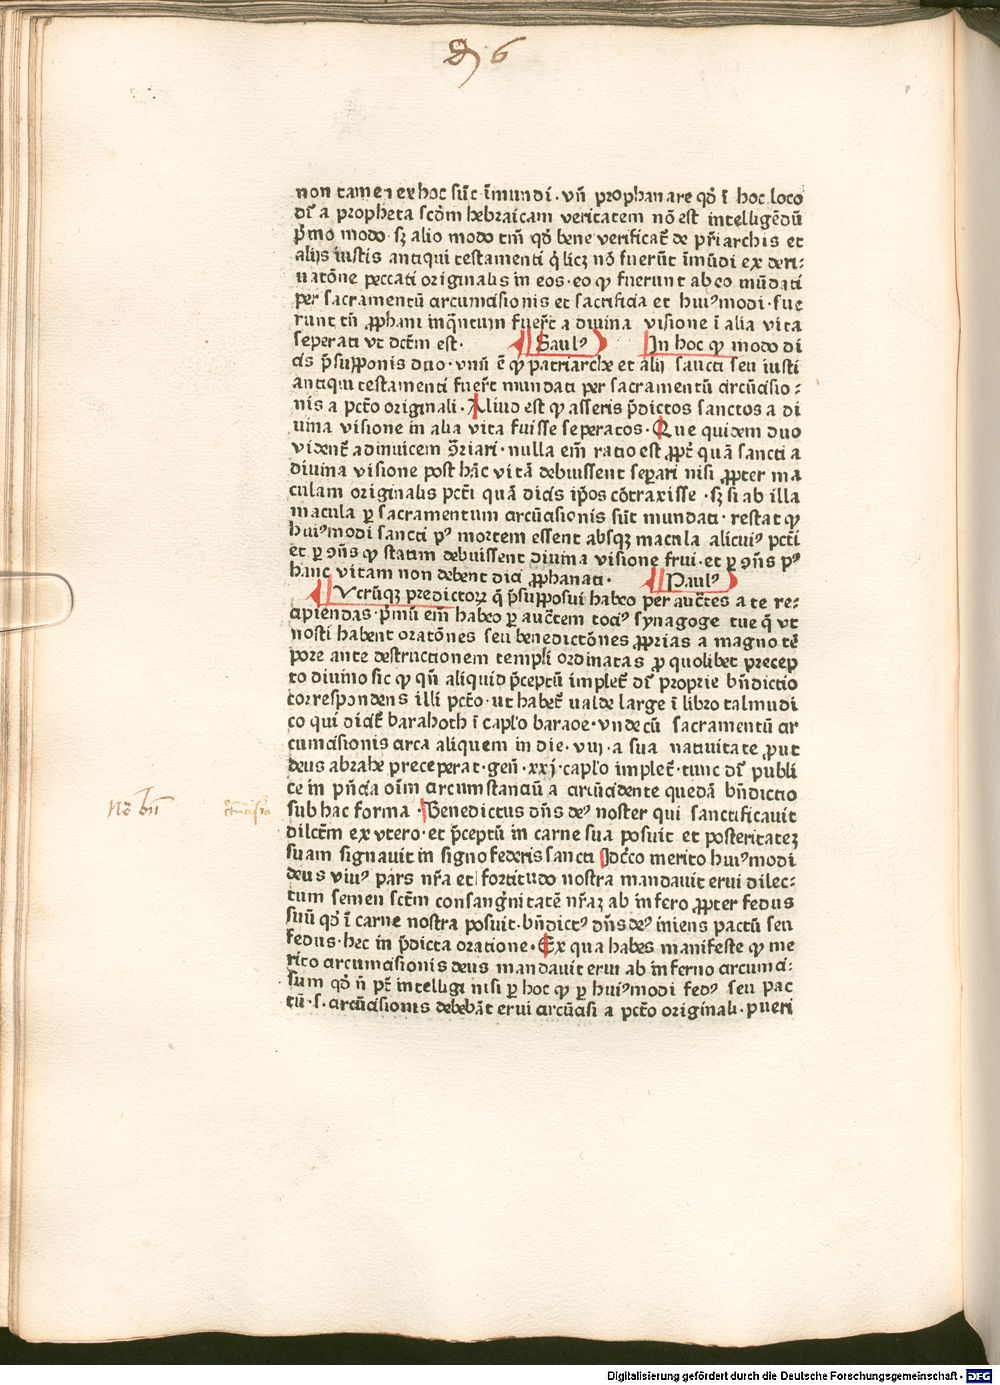 non tamen ex hoc sūt īmundi · vñ prophanare qď ī hoc loco
dr̄ a propheta scďm hebraicam veritatem nō est intelligēdū
p̄mo modo · sꝫ alio modo tm̄ qď bene verificať de pr̄iarchis et
alijs iustis antiqui testamenti q̇ licꝫ nō fuerūt īmūdi ex deri:
uatōne peccati originalis in eos · eo ꝙ fuerunt ab eo mūdati
per sacramentū circumcisionis et sacrificia et huiꝰmodi · fue
runt tn̄ ꝓphani inq̄ntum fuer̄t a diuina visione ī alia vita
seperati vt dictm̄ est · Saulꝰ In hoc ꝙ modo di
cis p̄supponis duo · vnū ē ꝙ patriarche et alij sancti seu iusti
antiqui testamenti fuer̄t mundati per sacramentū circūcisio:
nis a pctō originali · Aliud est ꝙ asseris p̄dictos sanctos a di
uina visione in alia vita fuisse seperatos · Que quidem duo
vident̄ adinuicem ꝯ̄riari · nulla em̄ ratio est ꝓpť quā sancti a
diuina visione post hāc vitā debuissent sep̱ari nisi ꝓpter ma
culam originalis pcti̅ quā dicis ip̄os cōtraxisse · sꝫ si ab illa
macula ꝑ sacramentum circūcisionis sūt mundati · restat ꝙ
huiꝰmodi sancti pꝰ mortem essent absqꝫ macula alicuiꝰ pcti̅
et ꝑ ꝯñs ꝙ statim debuissent diuina visione frui · et ꝑ ꝯñs pꝰ
hanc vitam non debent dici ꝓphanati · Paulꝰ
Vtrūqꝫ predictoꝝ q̇ p̄supposui habeo per auctes̄ a te re:
cipiendas · p̄mū em̄ habeo ꝑ auctem̄ tociꝰ synagoge tue q̄ vt
nosti habent oratōnes seu benedictōnes ꝓprias a magno tē
pore ante destructionem templi ordinatas ꝓ quolibet precep
to diuino sic ꝙ qn̄ aliquid p̄ceptū implet̄ dr̄ proprie bn̄dictio
correspondens illi pctō · ut habet̄ valde large ī libro talmudi
co qui dicit̄ barahoth ī caplo̅ baraoe · vnde cū sacramentū cir
cumcisionis circa aliquem in die · viij · a sua natiuitate ꝓut
deus abrahe preceperat · gen̄ · xxj · caplo̅ implet̄ · tunc dr̄ publi
ce in pn̄cia oīm circumstanciū a circūcidente quedā bn̄dictio
sub hac forma · Benedictus dn̄s deꝰ noster qui sanctificauit
dilctm̄ ex vtero · et p̄ceptū in carne sua posuit et posteritateꝫ
suam signauit in signo federis sancti Idcc̄o merito huiꝰmodi
deus viuꝰ pars nr̄a et fortitudo nostra mandauit erui dilec:
tum semen sctm̄ consang̍nitatē nr̄aꝫ ab infero ꝓpter fedus
suū qď ī carne nostra posuit · bn̄dictꝰ dn̄s deꝰ iniens pactū seu
fedus · hec in p̄dicta oratione · Ex qua habes manifeste ꝙ me
rito circumcisionis deus mandauit erui ab inferno circumci:
sum qď n̄ pt̄ intelligi nisi ꝑ hoc ꝙ ꝑ huiꝰmodi fedꝰ seu pac
tū · s · circūcisionis debebāt erui circūcisi a pctō originali · pueri
Digitalisierung gefördert durch die Deutsche Forschungsgemeinschaft - DFG